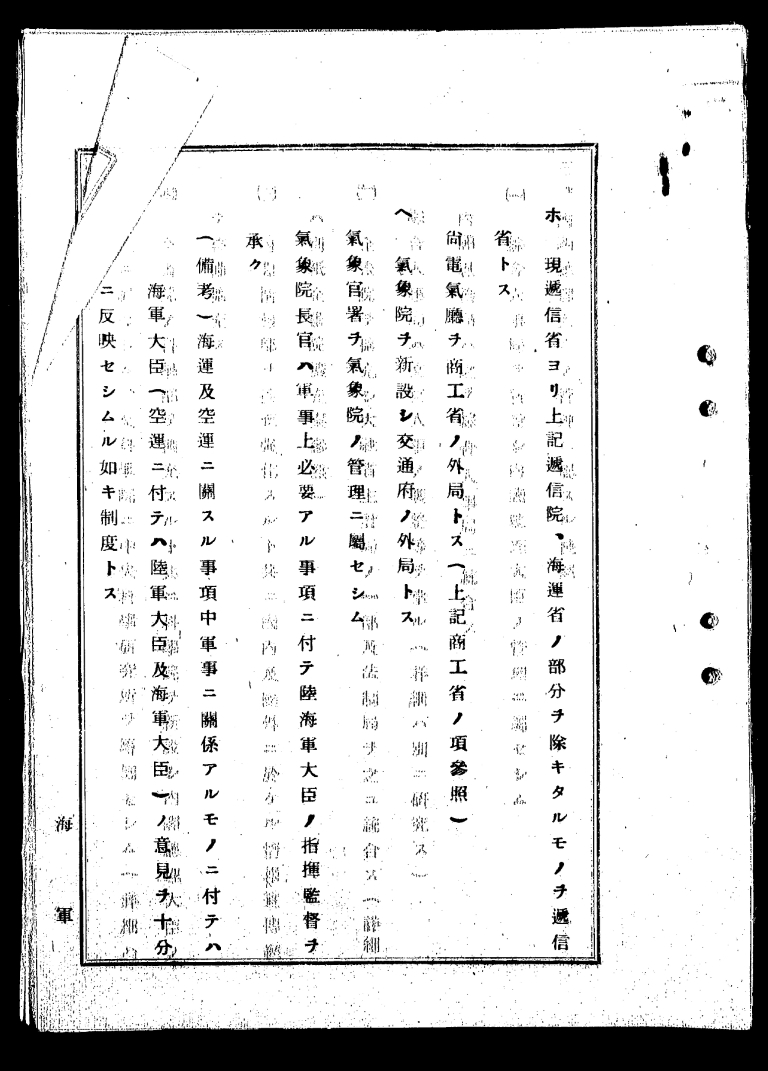 ホ 現遞信省ヨリ上記遞信院、海運省ノ部分ヲ除キタルモノヲ遞信
省トス
尙電氣廳ヲ商工省ノ外局トス(上記商工省ノ項參照)
ヘ 氣象院ヲ新設シ交通府ノ外局トス
氣象官署ヲ氣象院ノ管理ニ屬セシム
氣象院長官ハ軍事上必要アル事項ニ付テ陸海軍大臣ノ指揮監督ヲ
承ク
(備考)海運及空運ニ關スル事項中軍事ニ關係アルモノニ付テハ
海軍大臣(空運ニ付テハ陸軍大臣及海軍大臣)ノ意見ヲ十分
ニ反映セシムル如キ制度トス
海軍